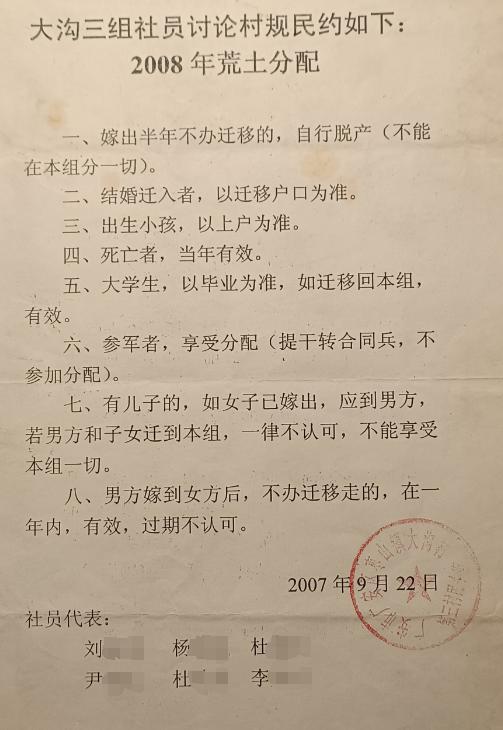 大沟三组社员讨论村规民约如下：
2008 年荒土分配
一、嫁出半年不办迁移的，自行脱产（不能
在本组分一切）。
二、结婚迁入者，以迁移户口为准。
三、出生小孩，以上户为准。
四、死亡者，当年有效。
五、大学生，以毕业为准，如迁移回本组，
有效。
六、参军者，享受分配（提干转合同兵，不
参加分配）。
七、有儿子的，如女子已嫁出，应到男方，
若男方和子女迁到本组，一律不认可，不能享受
本组一切。
八、男方嫁到女方后，不办迁移走的，在一
年内，有效，过期不认可。
2007 年 9 月 22 日
社员代表：
刘 杨 杜
尹 杜 李